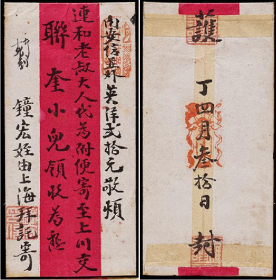 内安信并外英洋贰拾元敬煩
連和老叔大人代為附便寄至上川交
聯奎小兒領收為懇
鐘宏姪由上海拜託寄
護
丁四月叁拾日
封